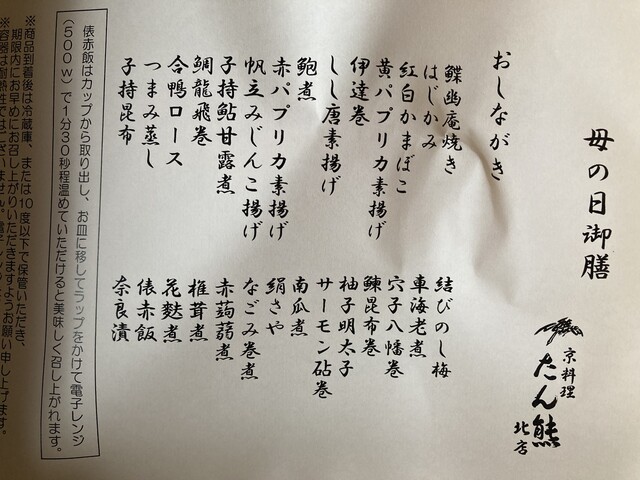 母の日御膳
京料理
たん熊
北店
おしながき
鰈幽庵焼き
はじかみ
紅白かまぼこ
黄パプリカ素揚げ
伊達巻
しし唐素揚げ
鮑煮
赤パプリカ素揚げ
帆立みじんこ揚げ
子持鮎甘露煮
鯛龍飛巻
合鴨ロース
つまみ蒸し
子持昆布
結びのし梅
車海老煮
穴子八幡巻
鰊昆布巻
柚子明太子
サーモン砧巻
南瓜煮
絹さや
なごみ巻煮
赤蒟蒻煮
椎茸煮
花麩煮
俵赤飯
奈良漬
俵赤飯はカップから取り出し、お皿に移してラップをかけて電子レンジ
(500w)で1分30秒程温めていただけると美味しく召し上がれます。
※商品到着後は冷蔵庫、または10度以下で保管いただき、
期限内にお早めにお召し上がりいただきますようお願い申し上げます。